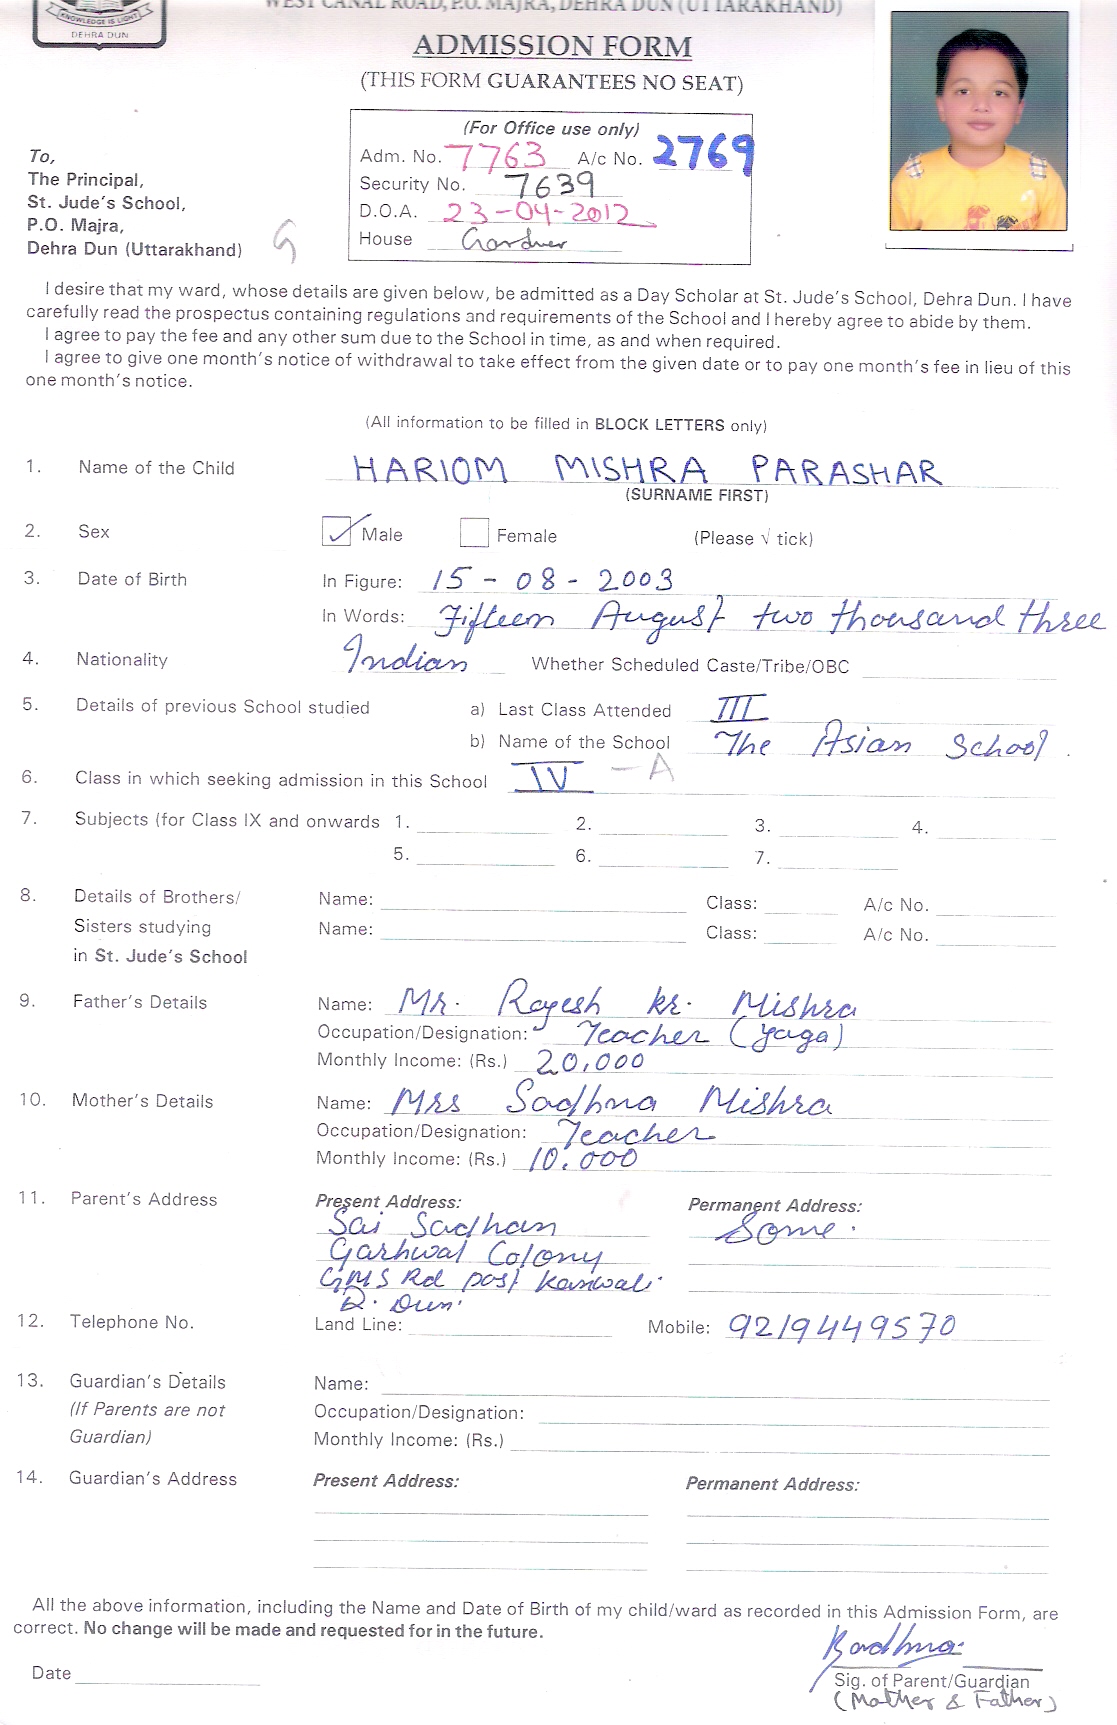 KNOWLEDGE IS LIGHT
DEHRA DUN
WEST CANAL ROAD, P.O. MAJRA, DEHRA DUN (UTTARAKHAND)
ADMISSION FORM
(THIS FORM GUARANTEES NO SEAT)
(For Office use only)
Adm. No. 7763 A/c No. 2769
Security No. 7639
D.O.A. 23-04-2012
House Gardner
To,
The Principal,
St. Jude's School,
P.O. Majra,
Dehra Dun (Uttarakhand)
G
I desire that my ward, whose details are given below, be admitted as a Day Scholar at St. Jude's School, Dehra Dun. I have
carefully read the prospectus containing regulations and requirements of the School and I hereby agree to abide by them.
I agree to pay the fee and any other sum due to the School in time, as and when required.
I agree to give one month's notice of withdrawal to take effect from the given date or to pay one month's fee in lieu of this
one month's notice.
(All information to be filled in BLOCK LETTERS only)
1. Name of the Child HARIOM MISHRA PARASHAR
(SURNAME FIRST)
2. Sex Male Female (Please √ tick)
3. Date of Birth In Figure: 15 - 08 - 2003
In Words: Fifteen August two thousand three
4. Nationality Indian Whether Scheduled Caste/Tribe/OBC
5. Details of previous School studied a) Last Class Attended III
b) Name of the School The Asian School.
6. Class in which seeking admission in this School IV - A
7. Subjects (for Class IX and onwards 1. 2. 3. 4.
5. 6. 7.
8. Details of Brothers/ Name: Class: A/c No.
Sisters studying Name: Class: A/c No.
in St. Jude's School
9. Father's Details Name: Mr. Rajesh kr. Mishra
Occupation/Designation: Teacher (yaga)
Monthly Income: (Rs.) 20,000
10. Mother's Details Name: Mrs Sadhna Mishra
Occupation/Designation: Teacher
Monthly Income: (Rs.) 10.000
11. Parent's Address Present Address: Permanent Address:
Sai Sadhan Same.
Garhwal Colony
GMS Rd post Kanwali
D. Dun.
12. Telephone No. Land Line: Mobile: 9219449570
13. Guardian's Details Name:
(If Parents are not Occupation/Designation:
Guardian) Monthly Income: (Rs.)
14. Guardian's Address Present Address: Permanent Address:
All the above information, including the Name and Date of Birth of my child/ward as recorded in this Admission Form, are
correct. No change will be made and requested for in the future.
Sadhna
Date Sig. of Parent/Guardian
(Mother & Father)